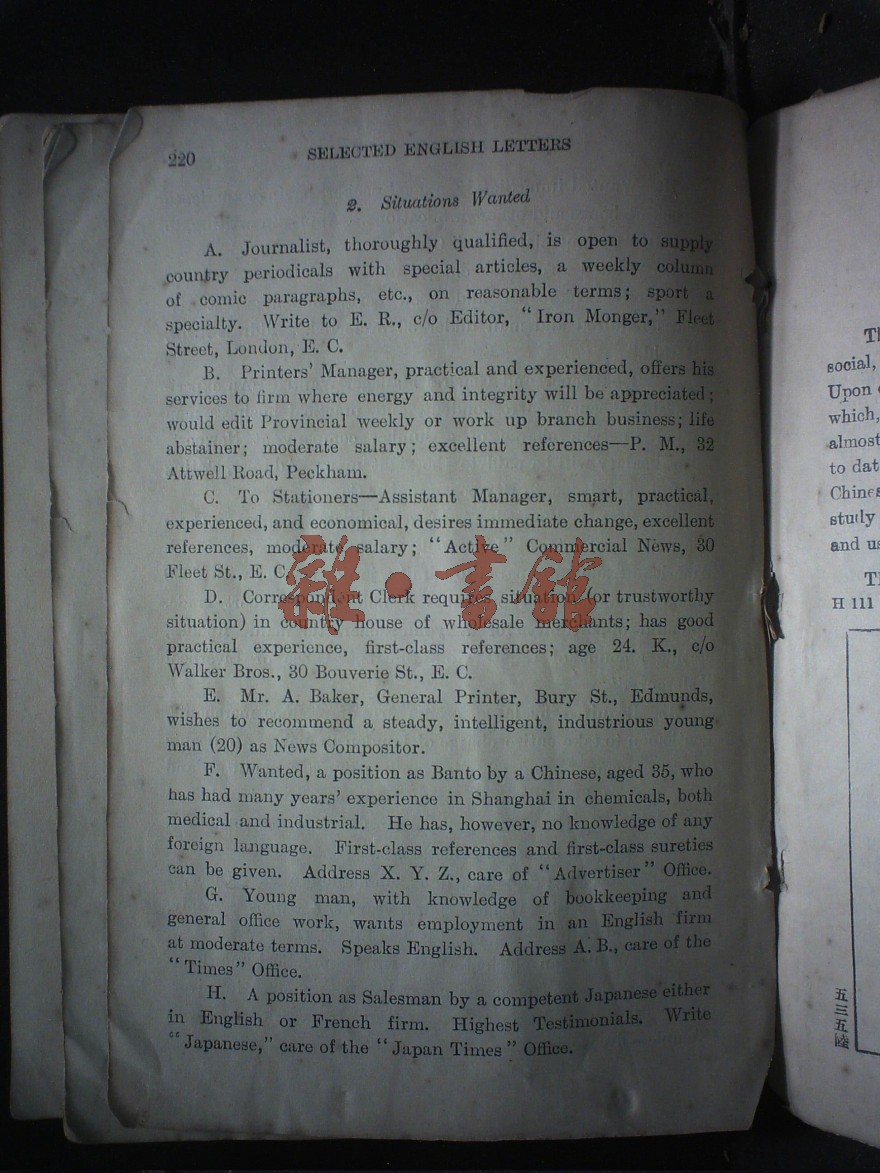 220 SELECTED ENGLISH LETTERS
2. Situations Wanted
A. Journalist, thoroughly qualified, is open to supply
country periodicals with special articles, a weekly column
of comic paragraphs, etc., on reasonable terms; sport a
specialty. Write to E. R., c/o Editor, “Iron Monger,” Fleet
Street, London, E. C.
B. Printers’ Manager, practical and experienced, offers his
services to firm where energy and integrity will be appreciated;
would edit Provincial weekly or work up branch business; life
abstainer; moderate salary; excellent references—P. M., 32
Attwell Road, Peckham.
C. To Stationers—Assistant Manager, smart, practical,
experienced, and economical, desires immediate change, excellent
references, moderate salary; “Active” Commercial News, 30
Fleet St., E. C.
D. Correspondent Clerk requires situation (or trustworthy
situation) in country house of wholesale merchants; has good
practical experience, first-class references; age 24. K., c/o
Walker Bros., 30 Bouverie St., E. C.
E. Mr. A. Baker, General Printer, Bury St., Edmunds,
wishes to recommend a steady, intelligent, industrious young
man (20) as News Compositor.
F. Wanted, a position as Banto by a Chinese, aged 35, who
has had many years’ experience in Shanghai in chemicals, both
medical and industrial. He has, however, no knowledge of any
foreign language. First-class references and first-class sureties
can be given. Address X. Y. Z., care of “Advertiser” Office.
G. Young man, with knowledge of bookkeeping and
general office work, wants employment in an English firm
at moderate terms. Speaks English. Address A. B., care of the
“Times” Office.
H. A position as Salesman by a competent Japanese either
in English or French firm. Highest Testimonials. Write
“Japanese,” care of the “Japan Times” Office.
雜·書館
social,
Upon
which,
almost
to dat
Chines
study
and us
H 111
五三五陸